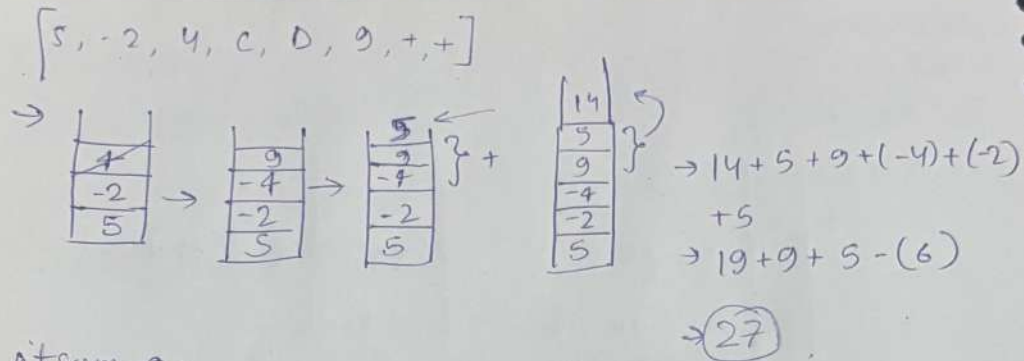 [5, -2, 4, C, D, 9, +, +]
→
4
-2
5
→
9
-4
-2
5
→
5 ←
9
-4
-2
5
} +
14
5
9
-4
-2
5
}
→ 14 + 5 + 9 + (-4) + (-2)
+ 5
→ 19 + 9 + 5 - (6)
→ 27